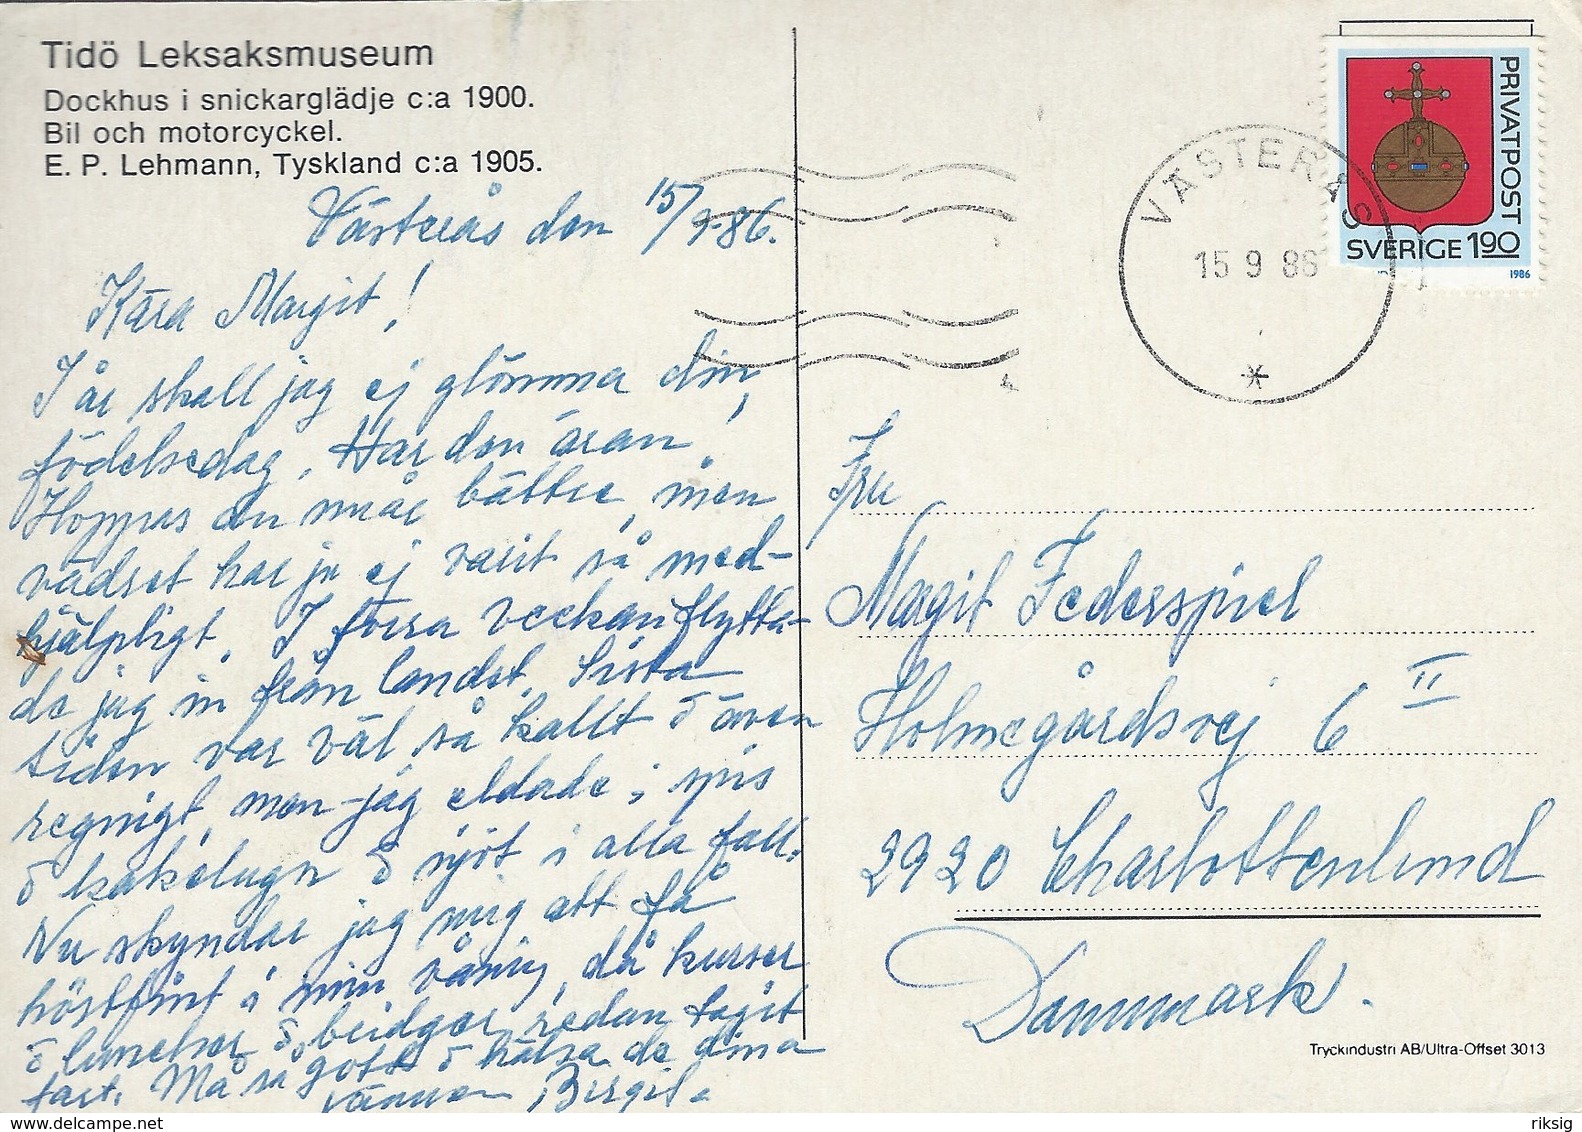 Tidö Leksaksmuseum
Dockhus i snickarglädje c:a 1900.
Bil och motorcyckel.
E. P. Lehmann, Tyskland c:a 1905.
Västerås den 15/9-86.
Kära Margit!
I år skall jag ej glömma din
födelsedag. Har den äran!
Hoppas du mår bättre, men
vädret har ju ej varit så med-
hjälpligt. I förra veckan flytta-
de jag in från landet. Sista
tiden var väl så kallt o även
regnigt, men jag eldade i spis
o kakelugn o njöt i alla fall.
Nu skyndar jag mig att få
höstfint i min våning, då kurser
o luncher o bridger redan tagit
fart. Må så gott o hälsa de dina
vännen Birgit.
PRIVATPOST
SVERIGE 190
1986
VÄSTERÅS
15 9 86
Fru
Margit Federspiel
Holmegårdsvej 6 II
2920 Charlottenlund
Danmark.
Tryckindustri AB/Ultra-Offset 3013
delcampe.net
riksig